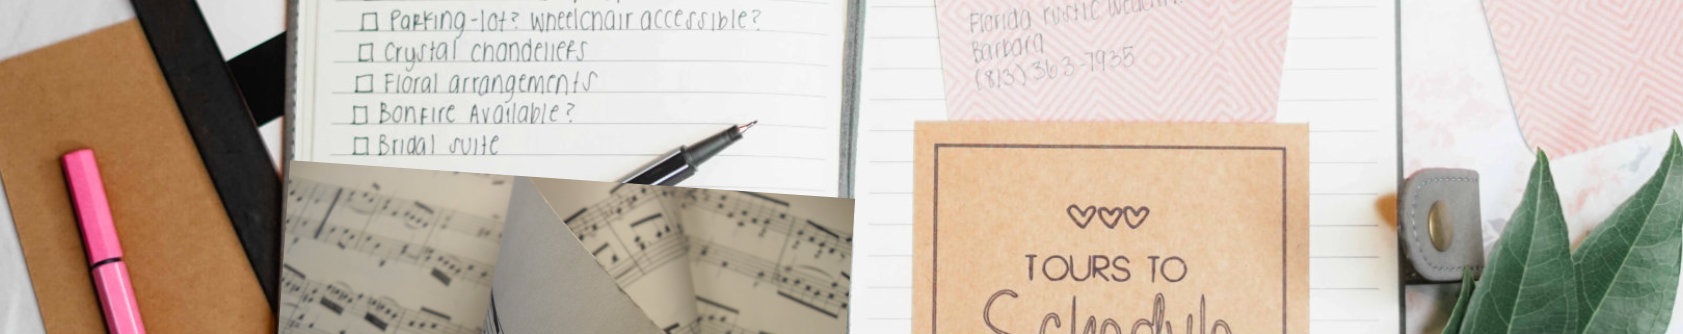 Parking-lot? wheelchair accessible?
Crystal chandeliers
Floral arrangements
Bonfire Available?
Bridal suite
Florida rustic
Barbara
(813) 363-7935
TOURS TO
Schedule